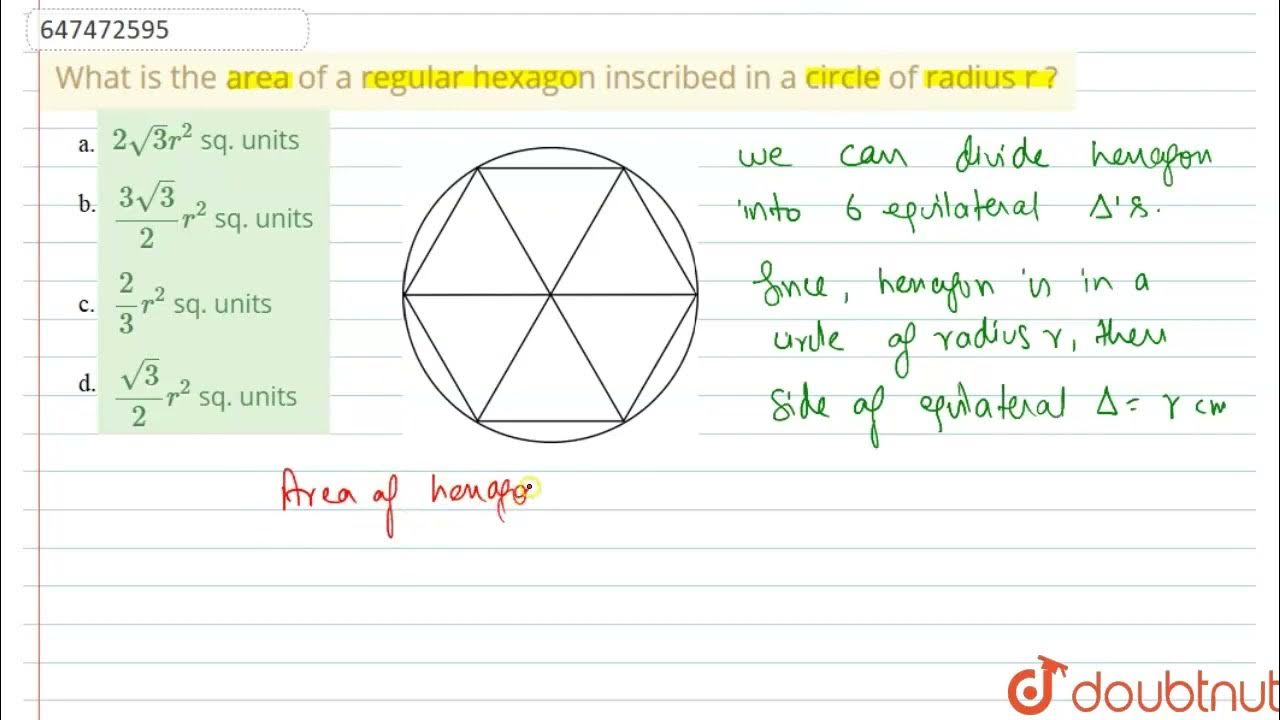 647472595
What is the area of a regular hexagon inscribed in a circle of radius r ?
a. 2√3r² sq. units
b. 3√3/2 r² sq. units
c. 2/3 r² sq. units
d. √3/2 r² sq. units
we can divide hexagon
into 6 equilateral Δ's.
Since, hexagon is in a
circle of radius r, then
side of equilateral Δ = r cm
Area of hexago
doubtnut